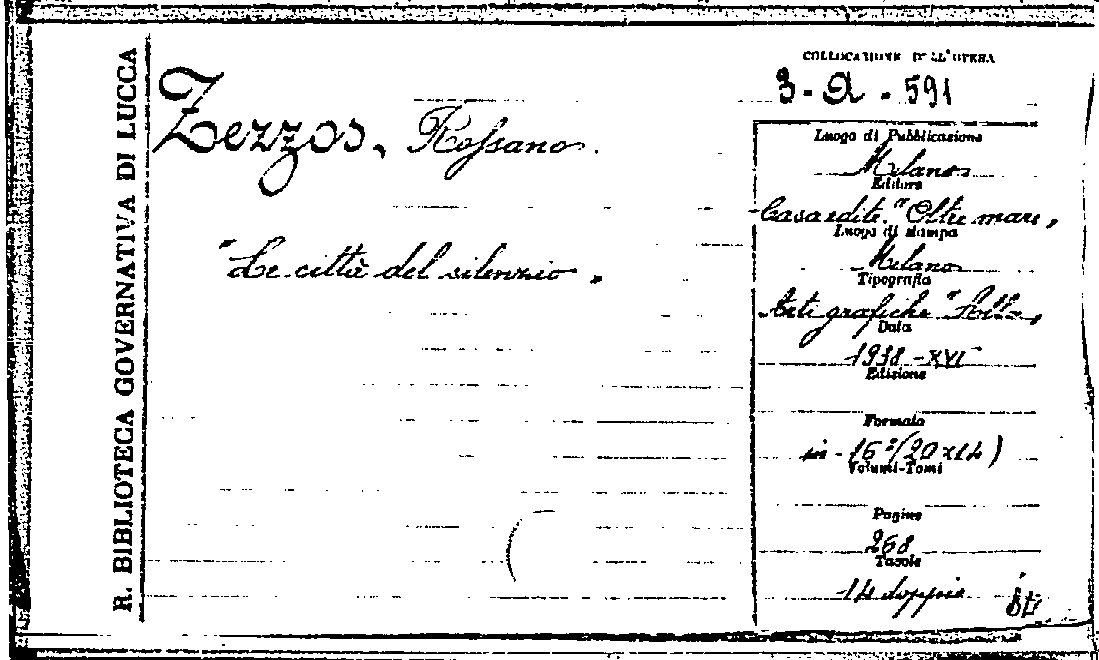 R. BIBLIOTECA GOVERNATIVA DI LUCCA
Zezzos, Rossano.
"Le città del silenzio".
COLLOCAZIONE DELL'OPERA
3 - A - 591
Luogo di Pubblicazione
Milano
Editore
Casa edit. "Oltre mare"
Luogo di stampa
Milano
Tipografia
Arti grafiche
Data
1938 - XVI
Edizione
Formato
in - 16° (20 x 14)
Volumi-Tomi
Pagine
268
Tavole
14 doppie